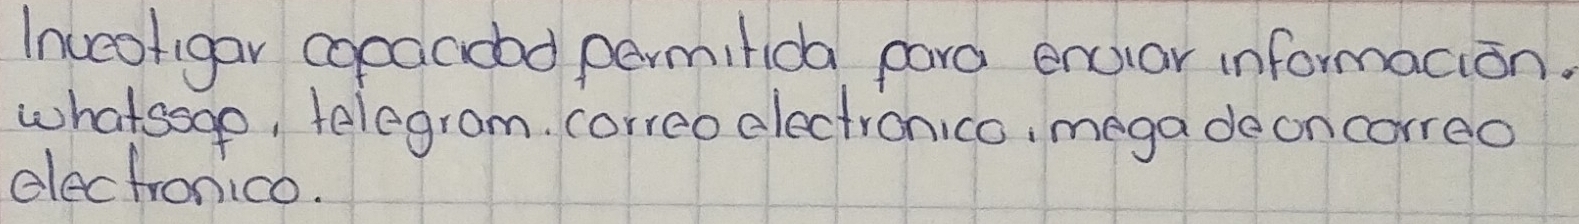 Investigar capacidad permitida para enviar información.
whatssap, telegram. correo electronico, mega de un correo
electronico.